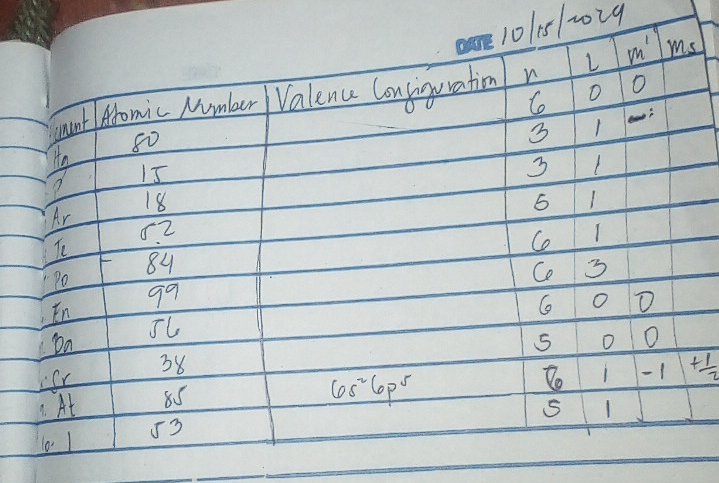 DATE 10/15/2024
Atomic Number Valence Configuration n L m' ms
Hg 80 6 0 0
P 15 3 1
Ar 18 3 1
Te 52 5 1
Po 84 6 1
En 99 6 3
Ba 56 6 0 0
Sr 38 5 0 0
At 85 6s²6p⁵ 6 1 -1 +1/2
10. I 53 5 1